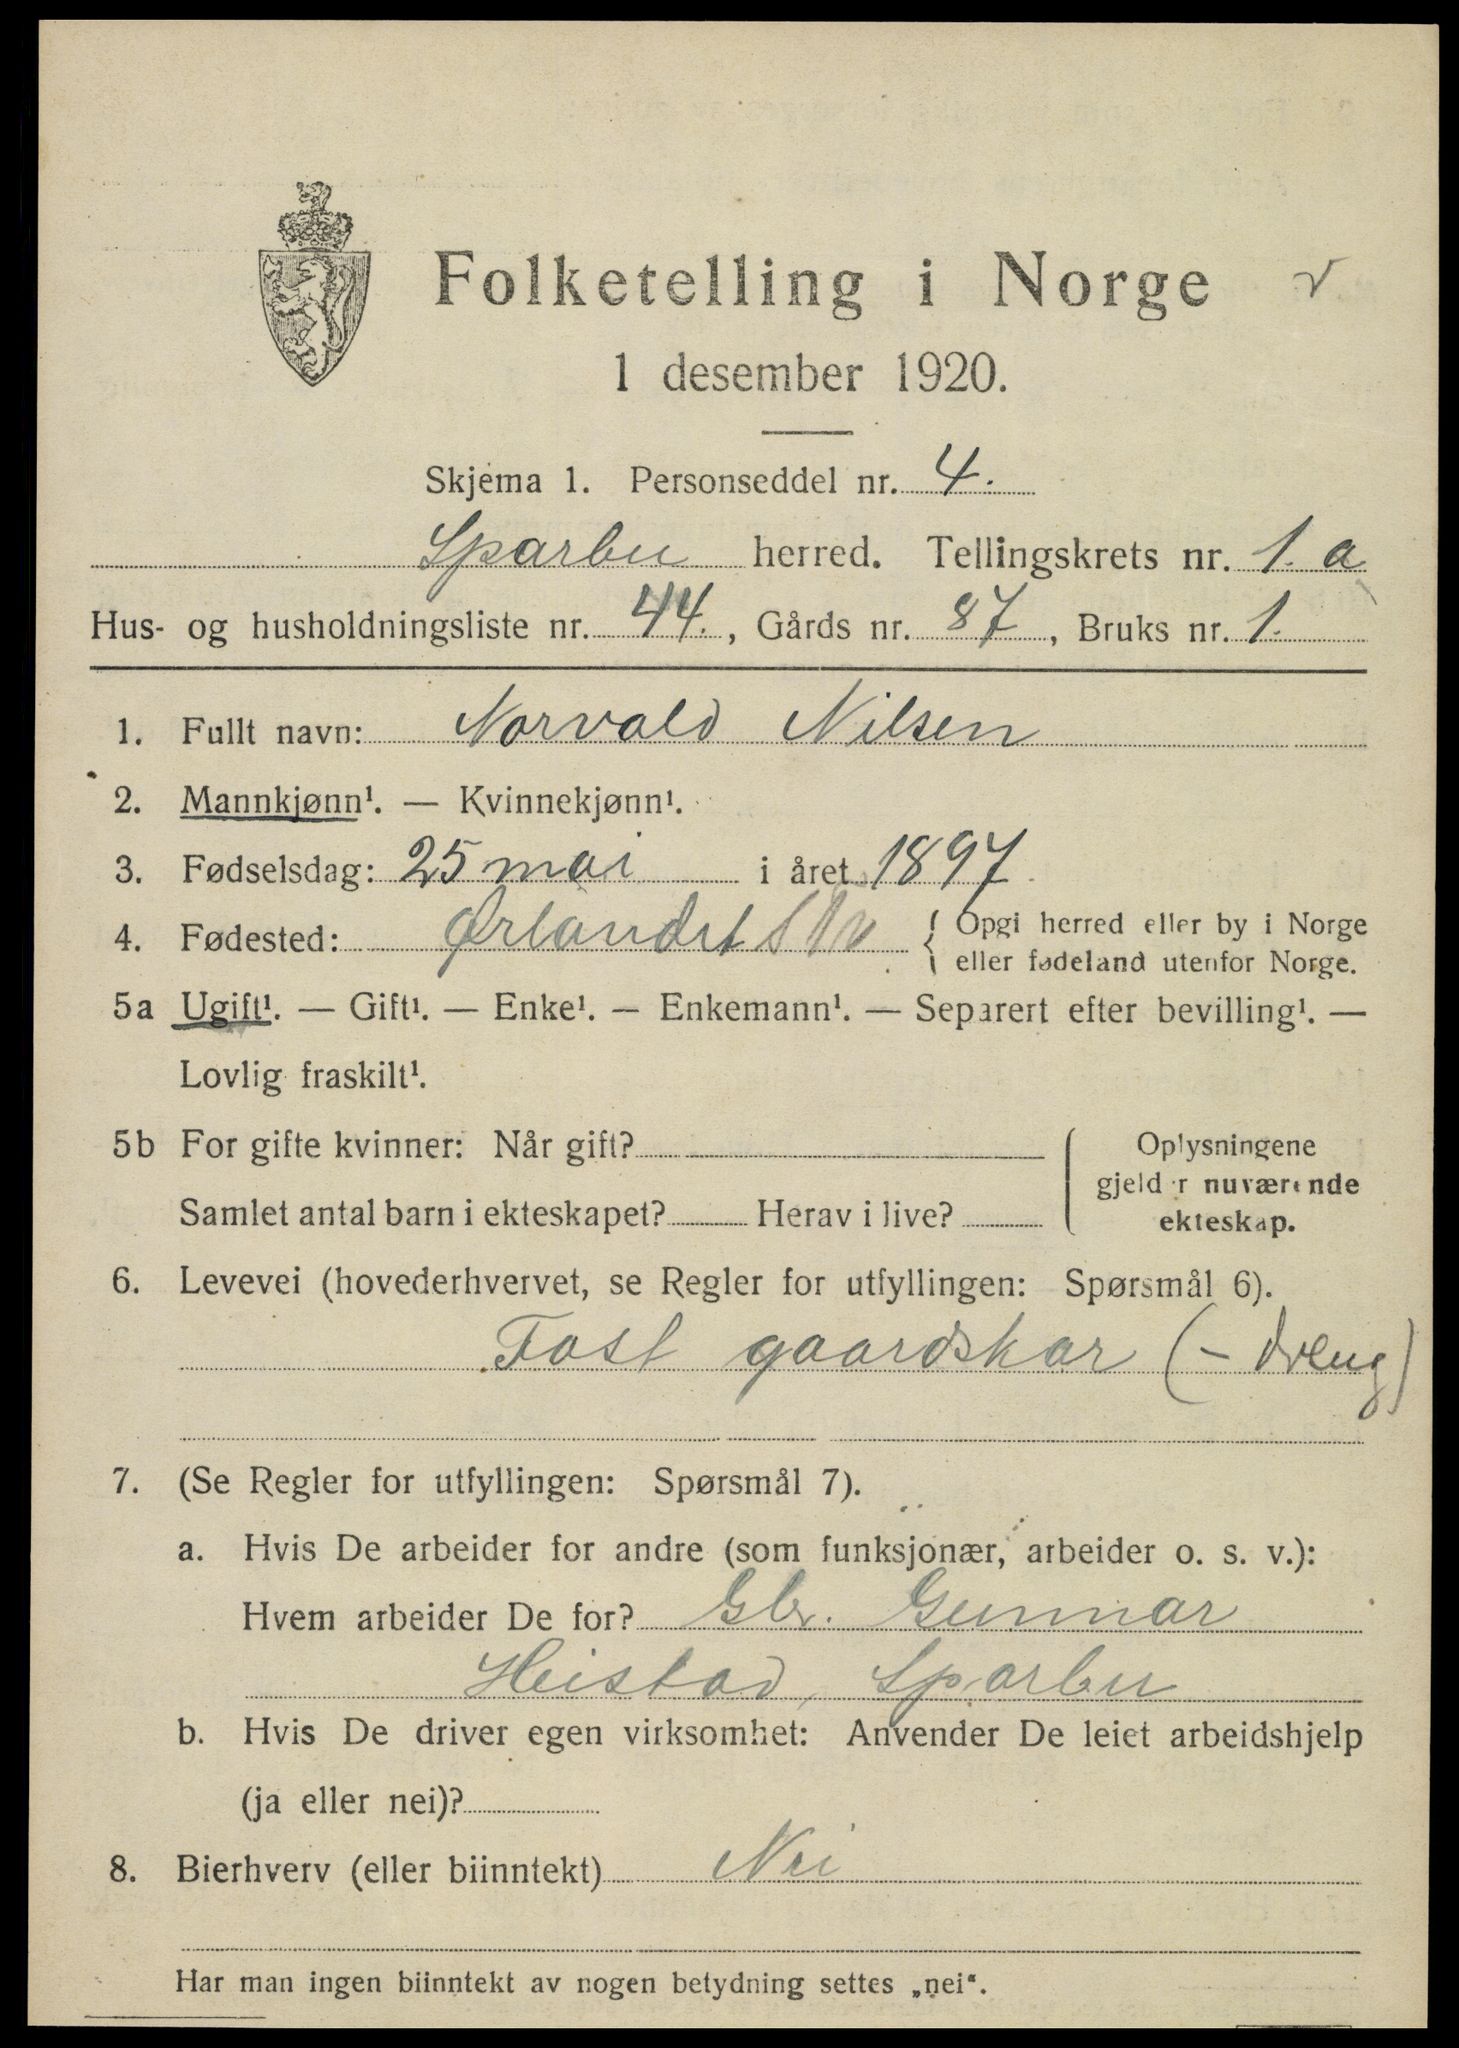 Folketelling i Norge
1 desember 1920.
Skjema 1. Personseddel nr. 4.
Sparbu herred. Tellingskrets nr. 1. a
Hus- og husholdningsliste nr. 44., Gårds nr. 87, Bruks nr. 1.
1. Fullt navn: Norvald Nilsen
2. Mannkjønn¹. — Kvinnekjønn¹.
3. Fødselsdag: 25 mai i året 1897.
4. Fødested: Ørlandet { Opgi herred eller by i Norge
eller fødeland utenfor Norge.
5a Ugift¹. — Gift¹. — Enke¹. — Enkemann¹. — Separert efter bevilling¹. —
Lovlig fraskilt¹.
5b For gifte kvinner: Når gift?
Samlet antal barn i ekteskapet? Herav i live?
Oplysningene
gjelder nuværende
ekteskap.
6. Levevei (hovederhvervet, se Regler for utfyllingen: Spørsmål 6).
Fast gaardskar (- dreng)
7. (Se Regler for utfyllingen: Spørsmål 7).
a. Hvis De arbeider for andre (som funksjonær, arbeider o. s. v.):
Hvem arbeider De for? Gbr. Gunnar
Heistad, Sparbu
b. Hvis De driver egen virksomhet: Anvender De leiet arbeidshjelp
(ja eller nei)?
8. Bierhverv (eller biinntekt) Nei
Har man ingen biinntekt av nogen betydning settes „nei“.